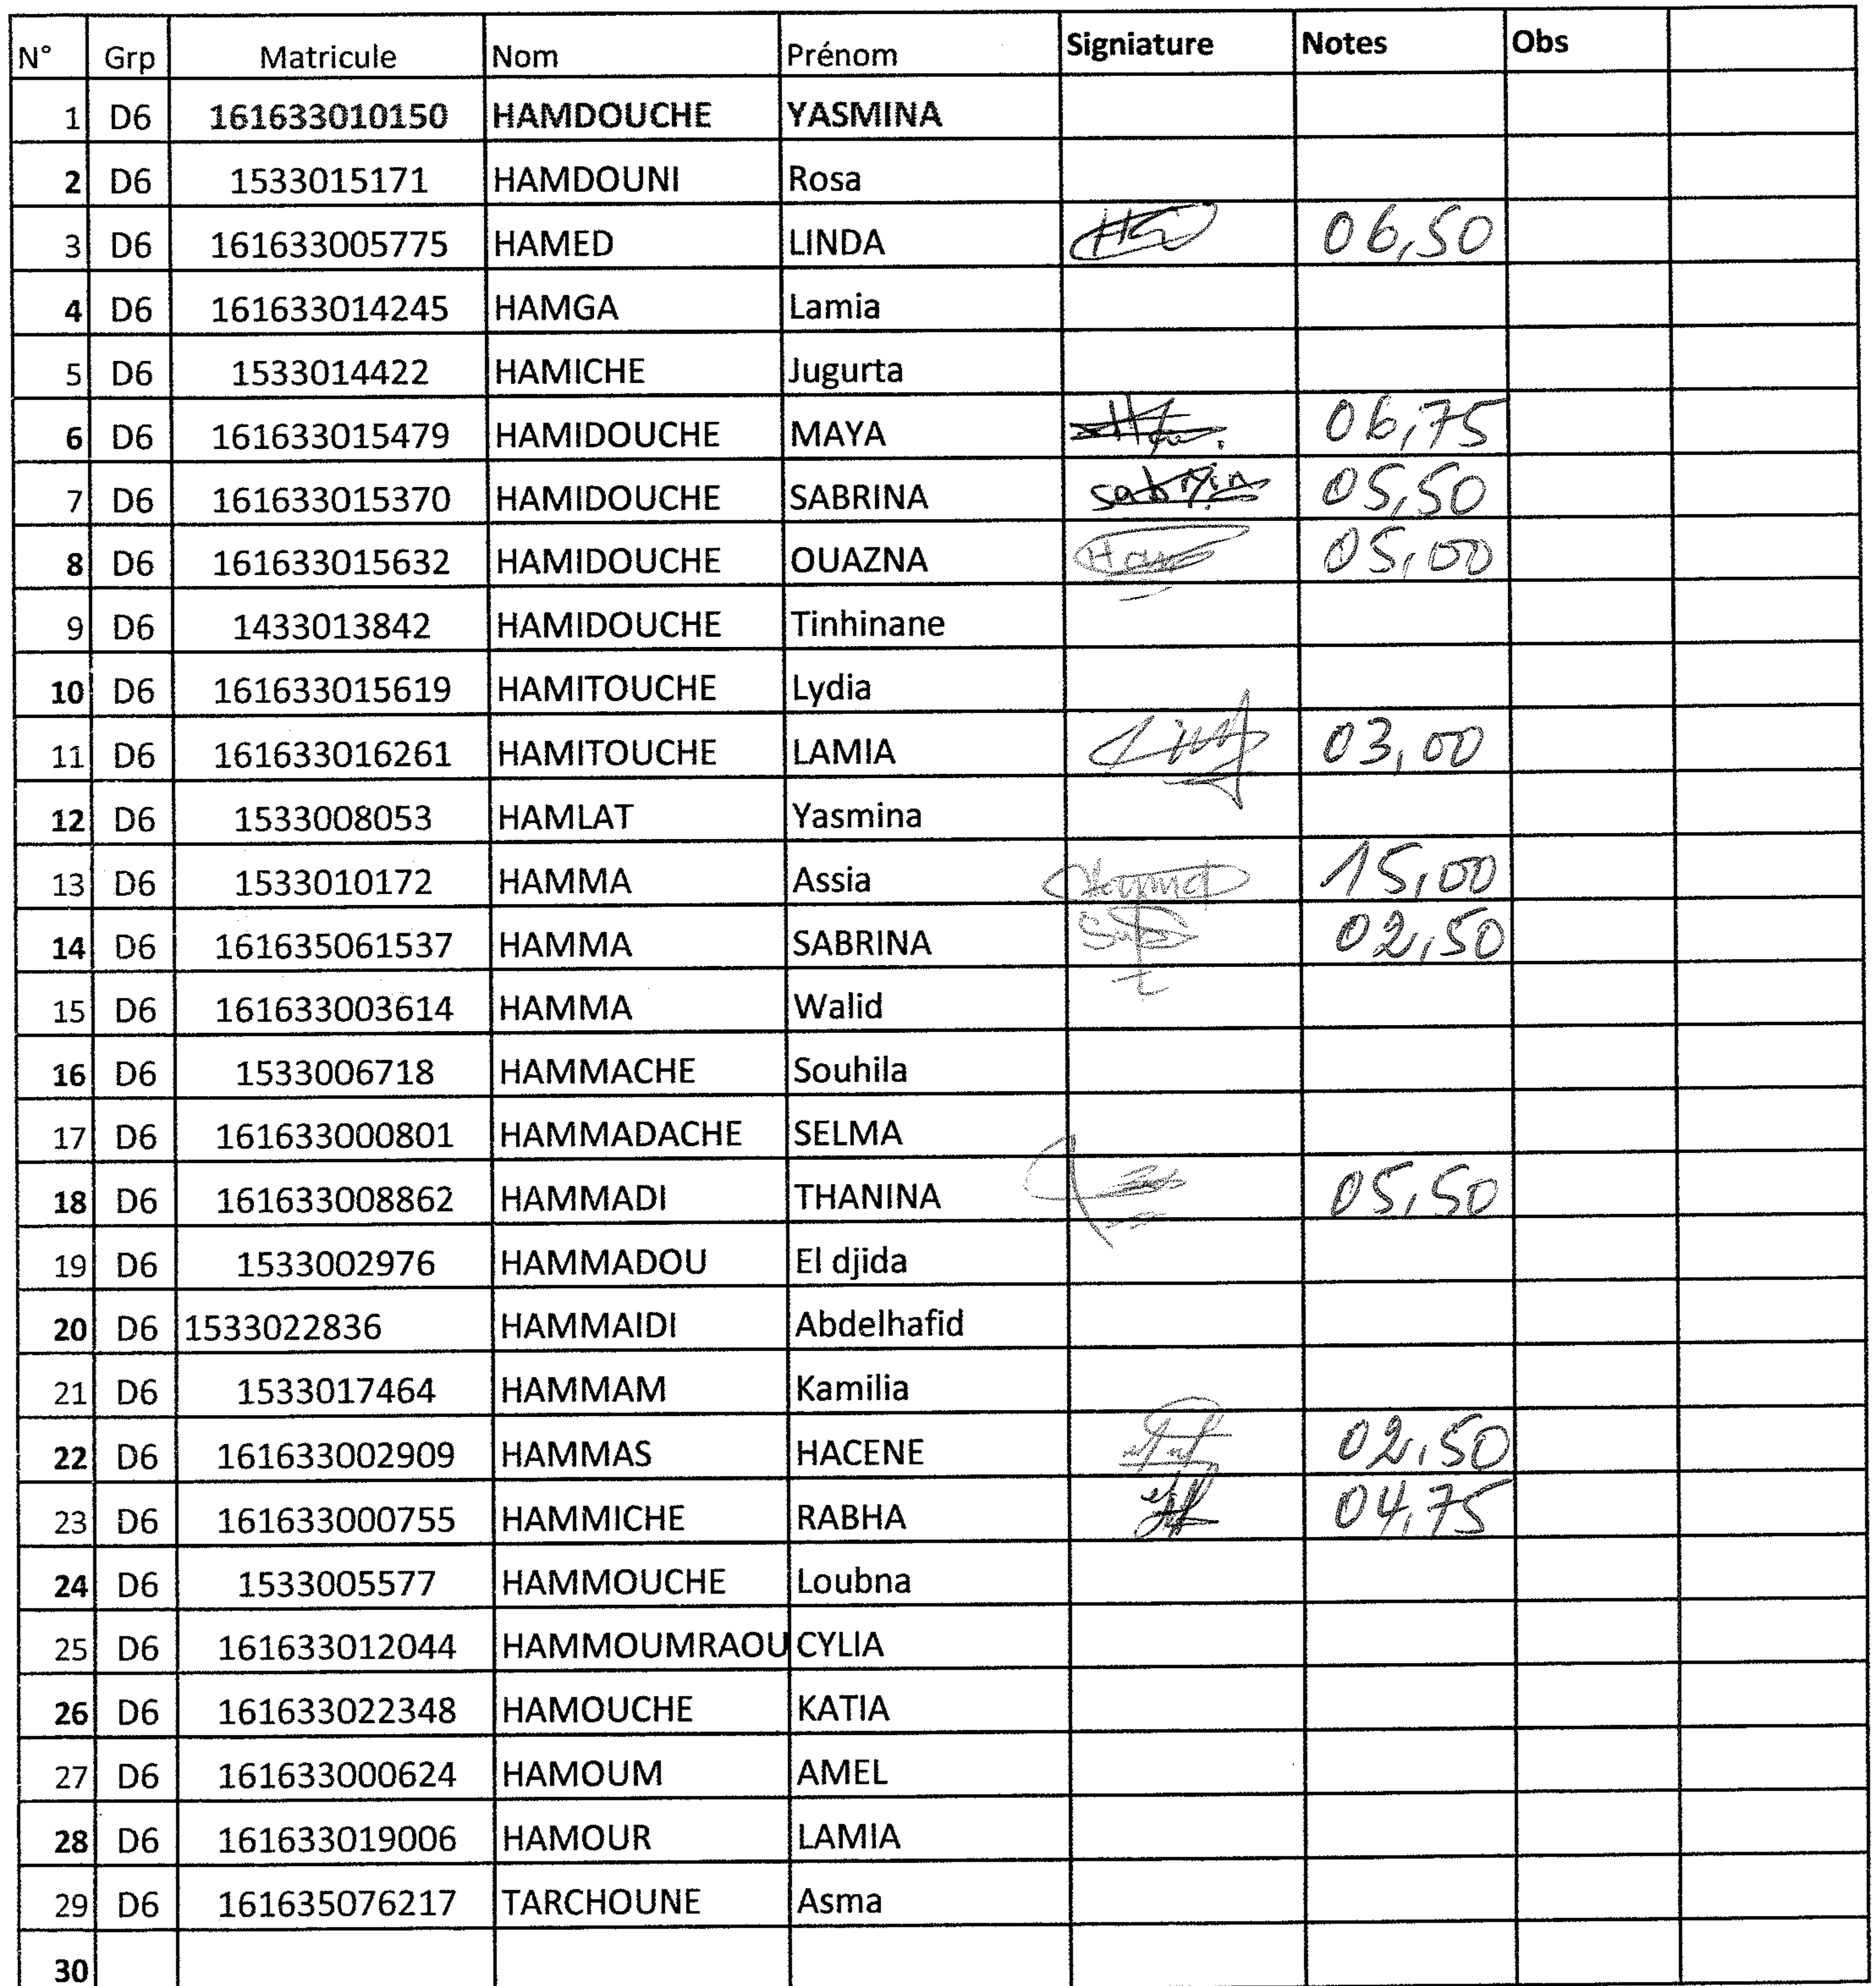 N° Grp Matricule Nom Prénom Signiature Notes Obs
1 D6 161633010150 HAMDOUCHE YASMINA
2 D6 1533015171 HAMDOUNI Rosa
3 D6 161633005775 HAMED LINDA 06,50
4 D6 161633014245 HAMGA Lamia
5 D6 1533014422 HAMICHE Jugurta
6 D6 161633015479 HAMIDOUCHE MAYA 06,75
7 D6 161633015370 HAMIDOUCHE SABRINA sabrin 05,50
8 D6 161633015632 HAMIDOUCHE OUAZNA 05,00
9 D6 1433013842 HAMIDOUCHE Tinhinane
10 D6 161633015619 HAMITOUCHE Lydia
11 D6 161633016261 HAMITOUCHE LAMIA 03,00
12 D6 1533008053 HAMLAT Yasmina
13 D6 1533010172 HAMMA Assia 15,00
14 D6 161635061537 HAMMA SABRINA 02,50
15 D6 161633003614 HAMMA Walid
16 D6 1533006718 HAMMACHE Souhila
17 D6 161633000801 HAMMADACHE SELMA
18 D6 161633008862 HAMMADI THANINA 05,50
19 D6 1533002976 HAMMADOU El djida
20 D6 1533022836 HAMMAIDI Abdelhafid
21 D6 1533017464 HAMMAM Kamilia
22 D6 161633002909 HAMMAS HACENE 02,50
23 D6 161633000755 HAMMICHE RABHA 04,75
24 D6 1533005577 HAMMOUCHE Loubna
25 D6 161633012044 HAMMOUMRAOU CYLIA
26 D6 161633022348 HAMOUCHE KATIA
27 D6 161633000624 HAMOUM AMEL
28 D6 161633019006 HAMOUR LAMIA
29 D6 161635076217 TARCHOUNE Asma
30